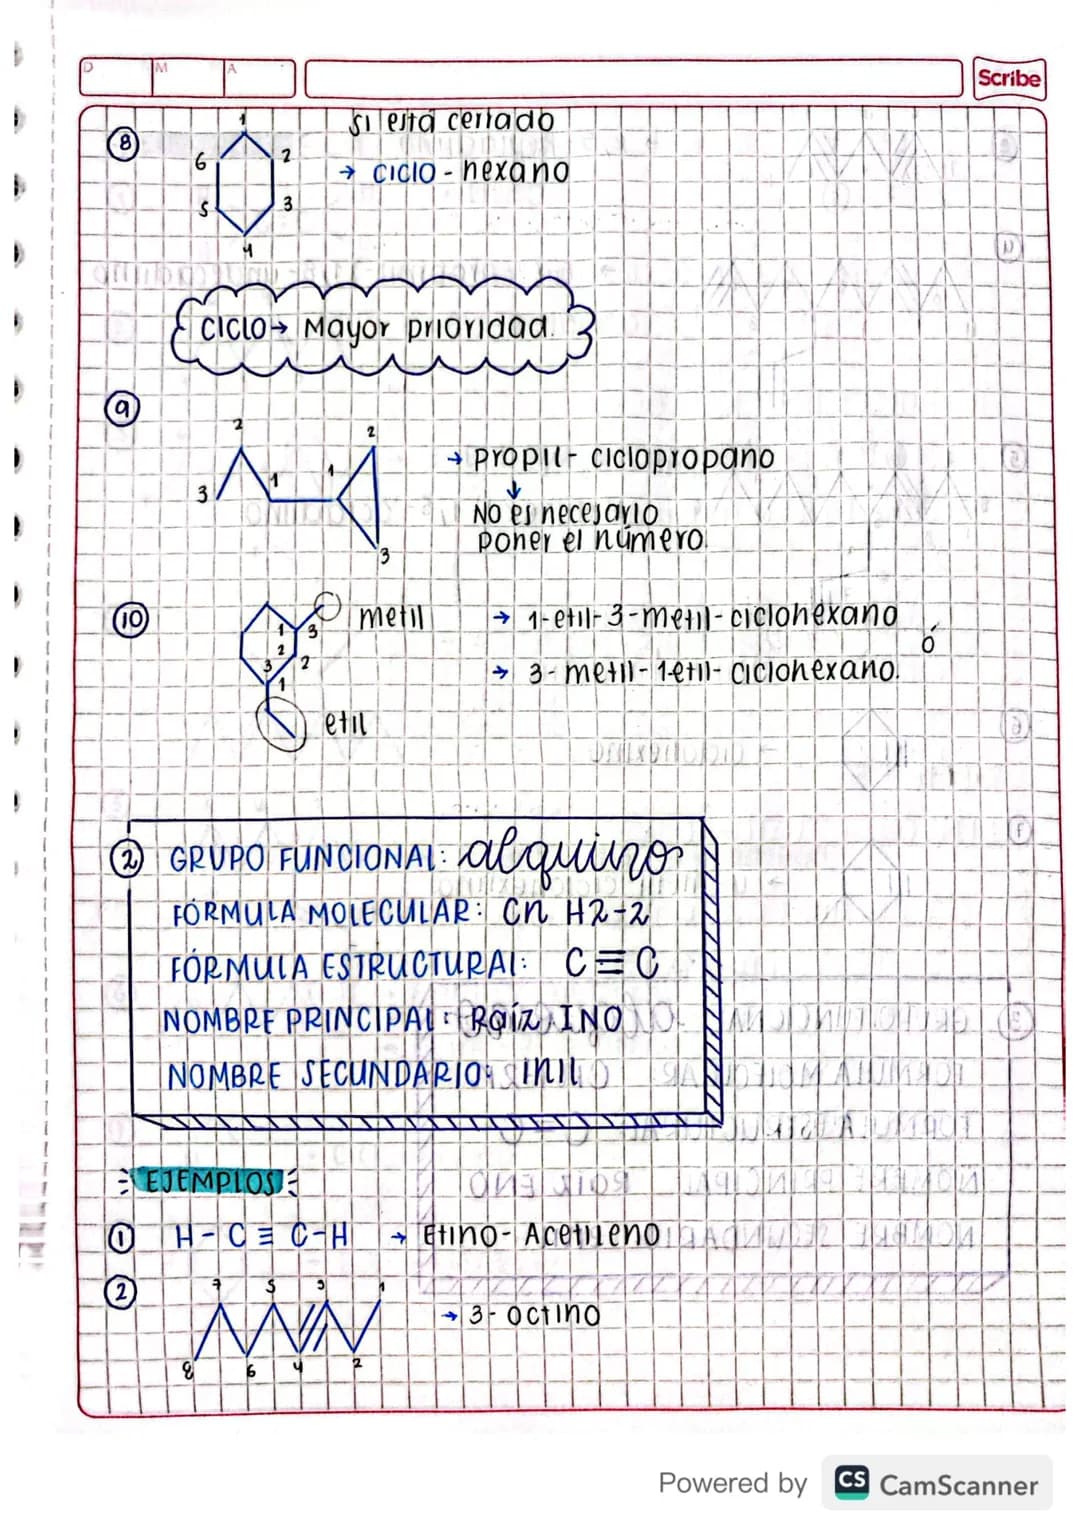 D M A
Scribe
8
si está cerrado
1
6 2
→ ciclo-hexano
5 3
4
CICLO → Mayor prioridad.
9
2 2
→ propil- ciclopropano
1 1
3
No es necesario
poner el número.
3
10
metil → 1-etil-3-metil-ciclohexano
1 3
ó
2
3 2
→ 3-metil-1-etil-ciclohexano.
1
etil
2 GRUPO FUNCIONAL: alquino
FÓRMULA MOLECULAR: Cn H2-2
FÓRMULA ESTRUCTURAL: C≡C
NOMBRE PRINCIPAL: Raíz INO
NOMBRE SECUNDARIO: inil
EJEMPLOS
1 H-C≡C-H → Etino- Acetileno
2
7 5 3 1
→ 3-octino
8 6 4 2
Powered by CS CamScanner